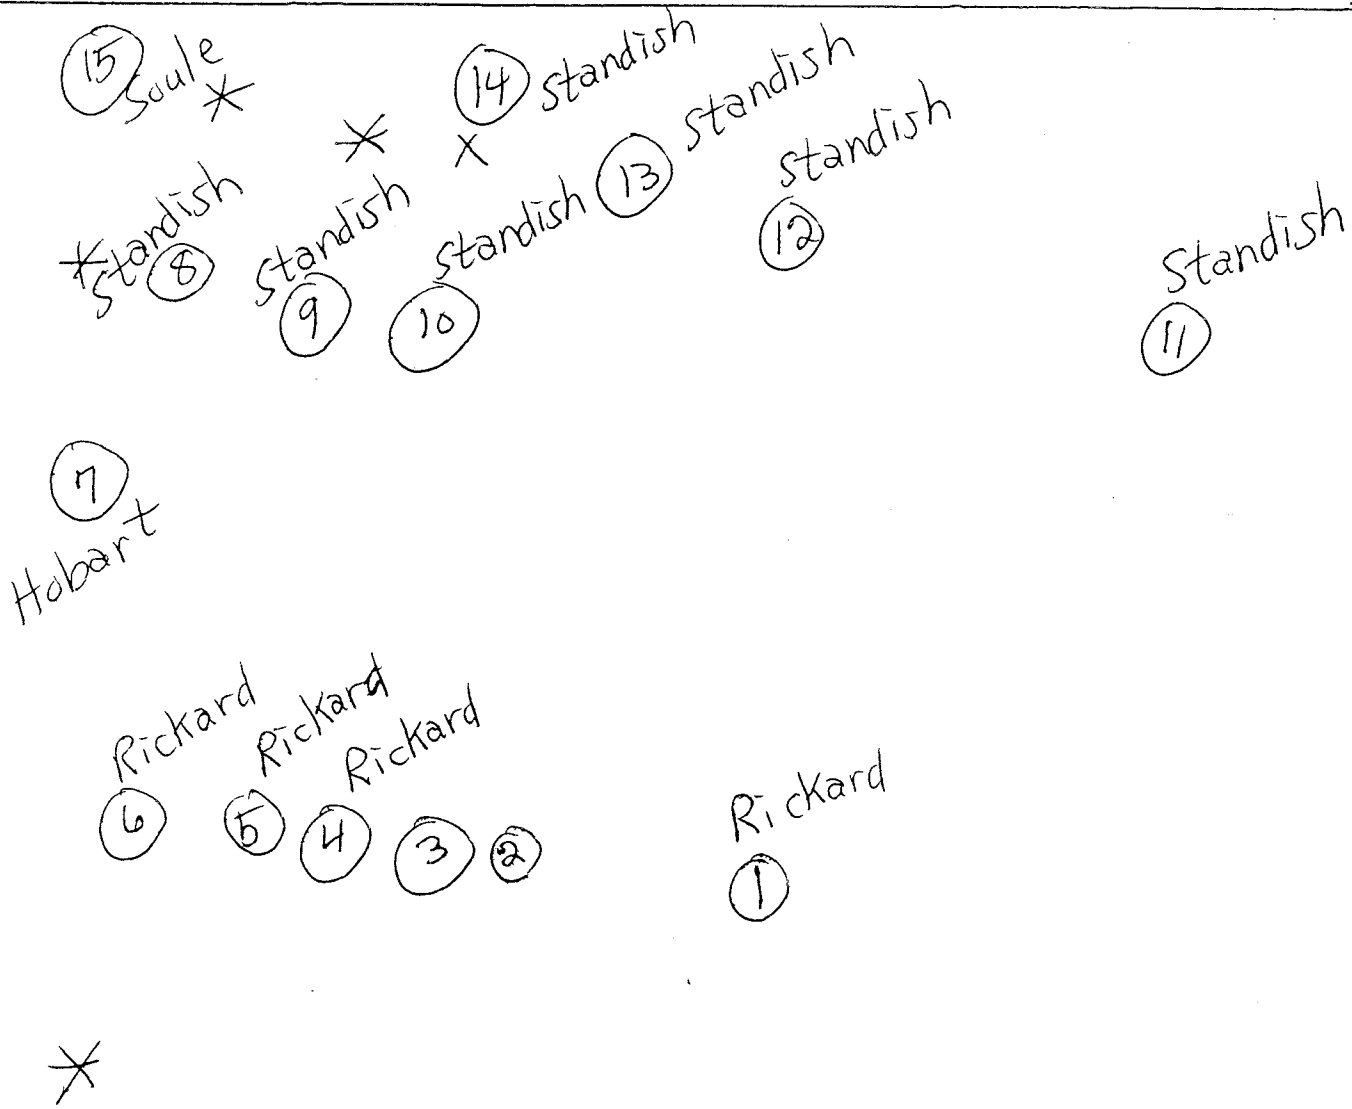 15 Soule
*
14 Standish
* x
13 Standish
12 Standish
* Standish 8
Standish 9
Standish 10
Standish 11
7
Hobart
Rickard Rickard Rickard
6 5 4 3 2
Rickard
1
*